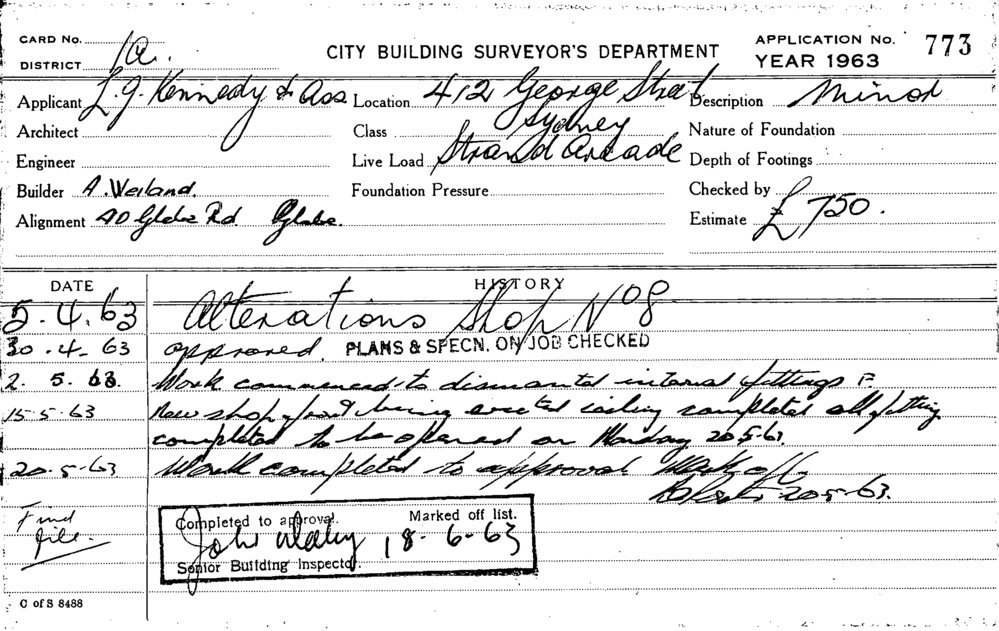 CARD No.
DISTRICT 1a.
CITY BUILDING SURVEYOR'S DEPARTMENT
APPLICATION No. 773
YEAR 1963
Applicant L. J. Kennedy & Ass Location 412 George Street Description Minor
Architect Class Sydney Nature of Foundation
Engineer Live Load Strand Arcade Depth of Footings
Builder A. Weiland. Foundation Pressure Checked by
Alignment 40 Glebe Rd Glebe. Estimate £750.
DATE HISTORY
5.4.63 Alterations Shop No 8
30.4.63 approved. PLANS & SPECN. ON JOB CHECKED
2.5.63. Work commenced to dismantel internal fittings
15.5.63 New shop front being erected ceiling completed all fitting
completed to be opened on Monday 20.5.63.
20.5.63 Work completed to approval Mark off
20.5.63.
Find
file.
Completed to approval. Marked off list.
John 18.6.63
Senior Building Inspector.
C of S 8488